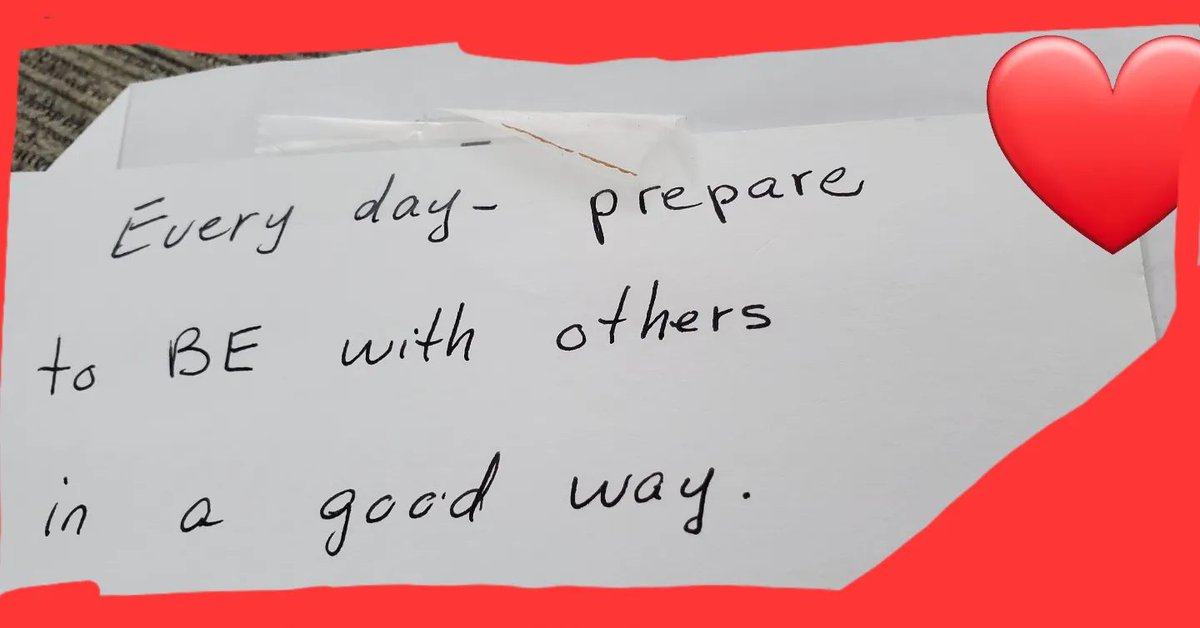 Every day- prepare
to BE with others
in a good way.